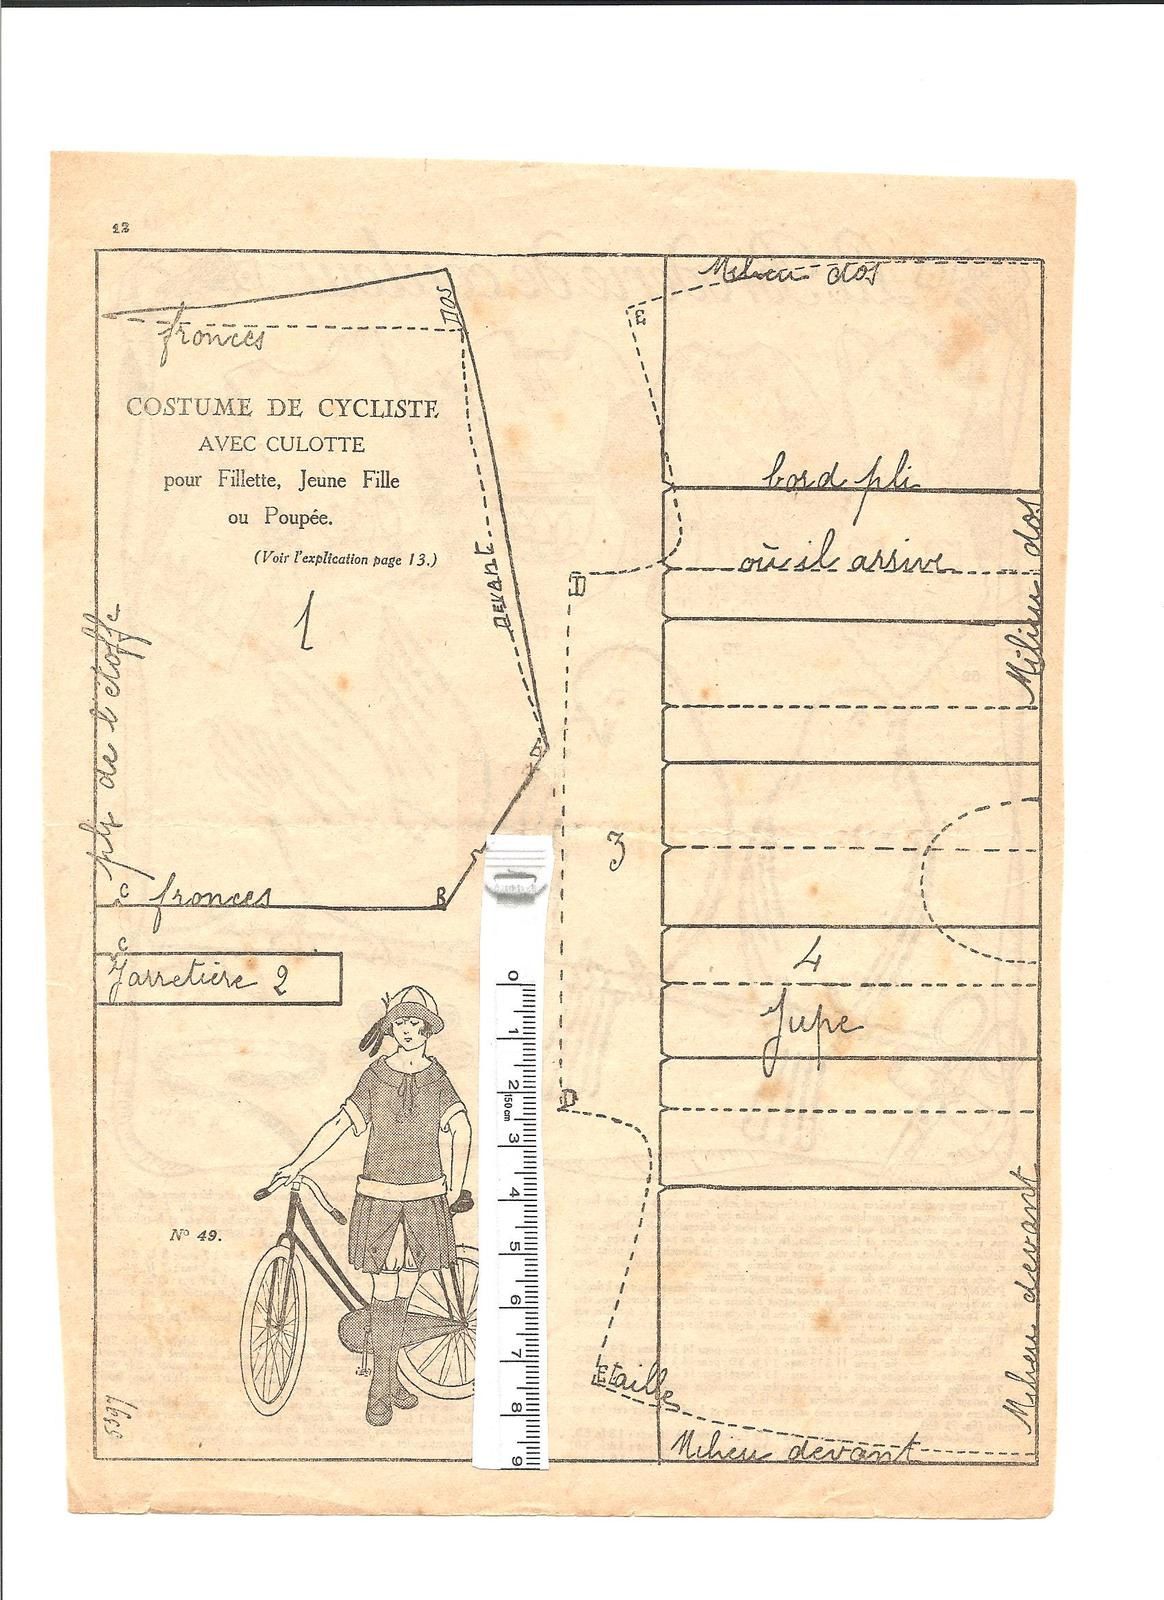 12
DOS
fronces
COSTUME DE CYCLISTE
AVEC CULOTTE
pour Fillette, Jeune Fille
ou Poupée.
(Voir l'explication page 13.)
1
DEVANT
pli de l'étoffe
C
fronces
B
C
Jarretière 2
Nº 49.
0
1
2
150 cm
3
4
5
6
7
8
9
Milieu dos
E
bord pli
où il arrive
D
Milieu dos
3
4
Jupe
D
E
taille
Milieu devant
Milieu devant